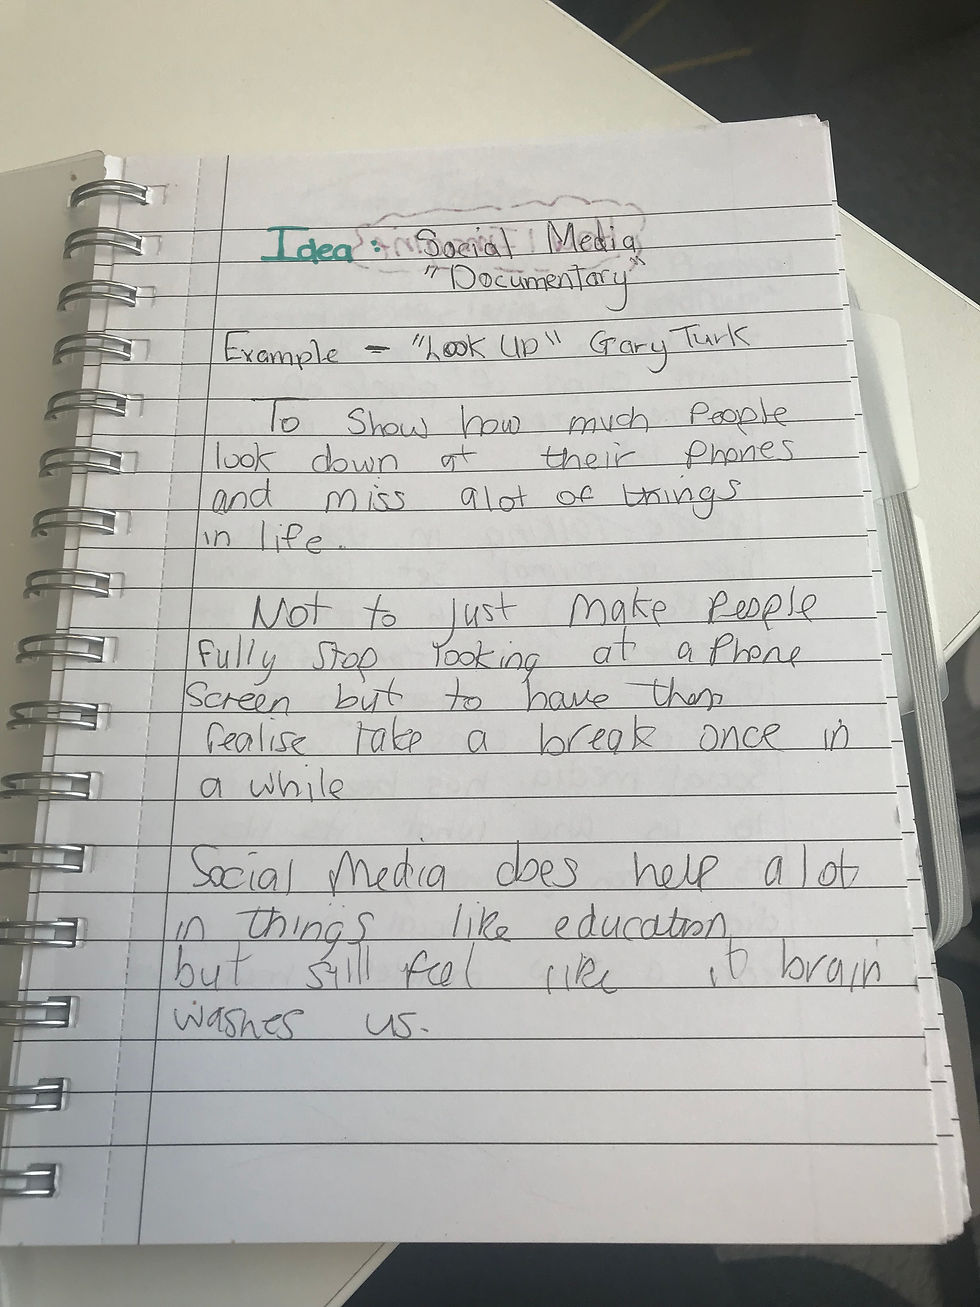 Idea: Social Media
"Documentary"
Example - "Look Up" Gary Turk
To Show how much People
look down at their Phones
and miss alot of things
in life.
Not to just make People
fully stop looking at a Phone
Screen but to have them
realise take a break once in
a while
Social Media does help alot
in things like education
but still feel like it brain
washes us.